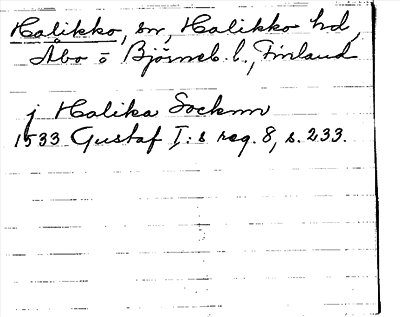 Halikko, sn, Halikko hd,
Åbo o Björneb. l., Finland
j Halika Socknn
1533 Gustaf I:s reg. 8, s. 233.